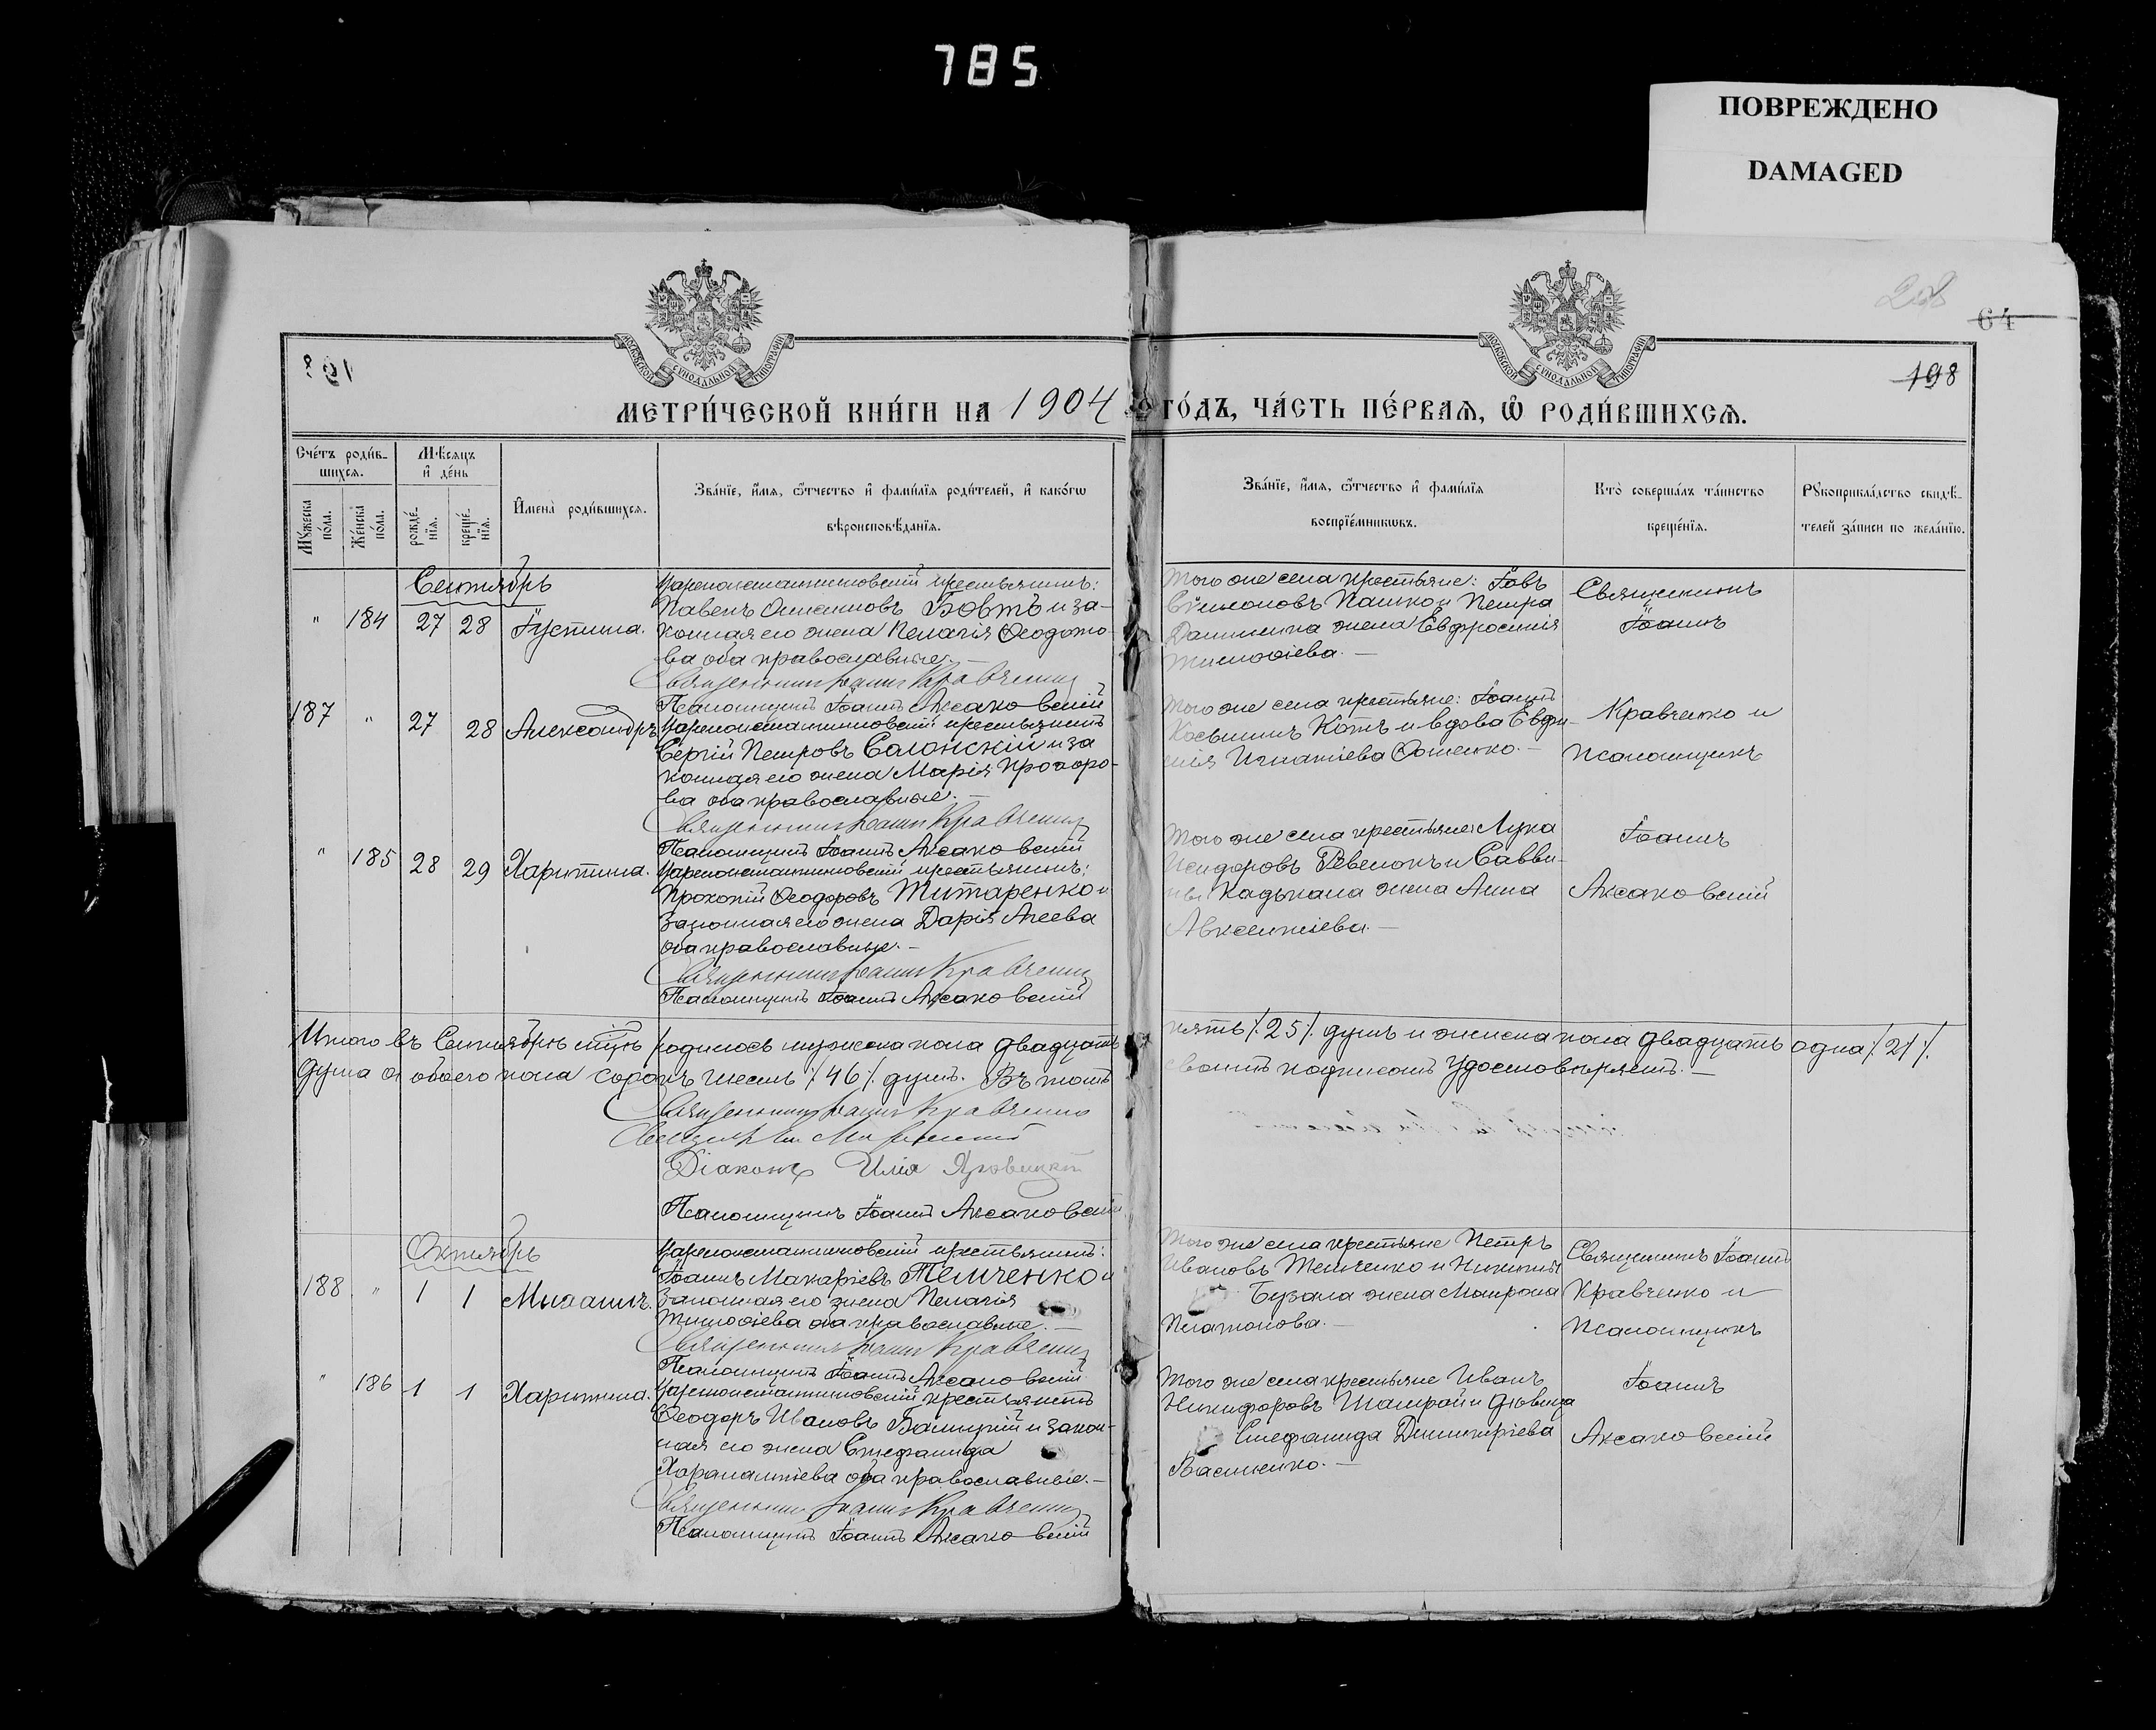 785
ПОВРЕЖДЕНО
DAMAGED
64
198
МЕТРИ́ЧЕСКОЙ КНИ́ГИ НА 1904 ГО́ДЪ, ЧА́СТЬ ПЕ́РВАѦ, Ѿ РОДИ́ВШИХСѦ.
МОСКОВСКОЙ СѴНОДАЛЬНОЙ ТИПОГРАФІИ
МОСКОВСКОЙ СѴНОДАЛЬНОЙ ТИПОГРАФІИ
Сче́тъ роди́в-
шихсѧ.
Мꙋ́жеска по́ла.
Же́нска по́ла.
Мѣ́сѧцъ
и҆ де́нь
рожде́-
нїѧ.
креще́-
нїѧ.
И҆мена̀ роди́вшихсѧ.
Зва́нїе, и҆́мѧ, ѻ҆́тчество и҆ фами́лїѧ роди́телей, и҆ како́гѡ
вѣроисповѣ́данїѧ.
Зва́нїе, и҆́мѧ, ѻ҆́тчество и҆ фами́лїѧ
воспрїе́мникѡвъ.
Кто̀ соверша́лъ та́инство
креще́нїѧ.
Рꙋкоприкла́дство свидѣ́-
телей за́писи по жела́нїю.
Сентябрь
" 184 27 28 Іустина.
Цареконстантиновскій крестьянинъ:
Павелъ Бовтъ и за-
конная его жена Пелагія
ва оба православные.
Священникъ Іоаннъ Кравченко
Псаломщикъ Іоаннъ Аксаковскій
Того же села крестьяне: Іовъ
Сѵмеоновъ Пашко и Петра
жена Евфросинія
Тимоѳіева.
Священникъ
Іоаннъ
187 " 27 28 Александръ
Цареконстантиновскій крестьянинъ
Сергій Петровъ Солонскій и за
конная его жена Марія Прохоро-
ва оба православные.
Священникъ Іоаннъ Кравченко
Псаломщикъ Іоаннъ Аксаковскій
Того же села крестьяне: Іоаннъ
Котъ и вдова Евфи-
Игнатіева
Кравченко и
Псаломщикъ
" 185 28 29 Харитина.
Цареконстантиновскій крестьянинъ:
Прокопій Ѳеодоровъ Титаренко и
законная его жена Дарія Агеева
оба православные.
Священникъ Іоаннъ Кравченко
Псаломщикъ Іоаннъ Аксаковскій
Того же села крестьяне Лука
Исидоровъ Ревенокъ и Савви-
ны жена Анна
Авксентіева.
Іоаннъ
Аксаковскій
Итого въ Сентябрѣ мцѣ родилось мужеска пола двадцать пять /.25/. душъ и женска пола двадцать одна /.21/.
душа а обоего пола сорокъ шесть /.46/. душъ. Въ томъ своимъ подписомъ удостовѣряемъ.
Священникъ Іоаннъ Кравченко
Діаконъ Илія
Псаломщикъ Іоаннъ Аксаковскій
Октябрь
188 " 1 1 Михаилъ.
Цареконстантиновскій крестьянинъ:
Іоаннъ Макаріевъ Темченко и
законная его жена Пелагія
Тимоѳіева оба православные.
Священникъ Іоаннъ Кравченко
Псаломщикъ Іоаннъ Аксаковскій
Того же села крестьяне Петръ
Ивановъ Темченко и Никиты
Бузала жена Матрона
Платонова.
Священникъ Іоаннъ
Кравченко и
Псаломщикъ
" 186 1 1 Харитина.
Цареконстантиновскій крестьянинъ
Ѳеодоръ Ивановъ и закон-
ная его жена Стефанида
Харалампіева оба православные.
Священникъ Іоаннъ Кравченко
Псаломщикъ Іоаннъ Аксаковскій
Того же села крестьяне Иванъ
Никифоровъ Шамрай и дѣвица
Стефанида Димитріева
Василенко.
Іоаннъ
Аксаковскій